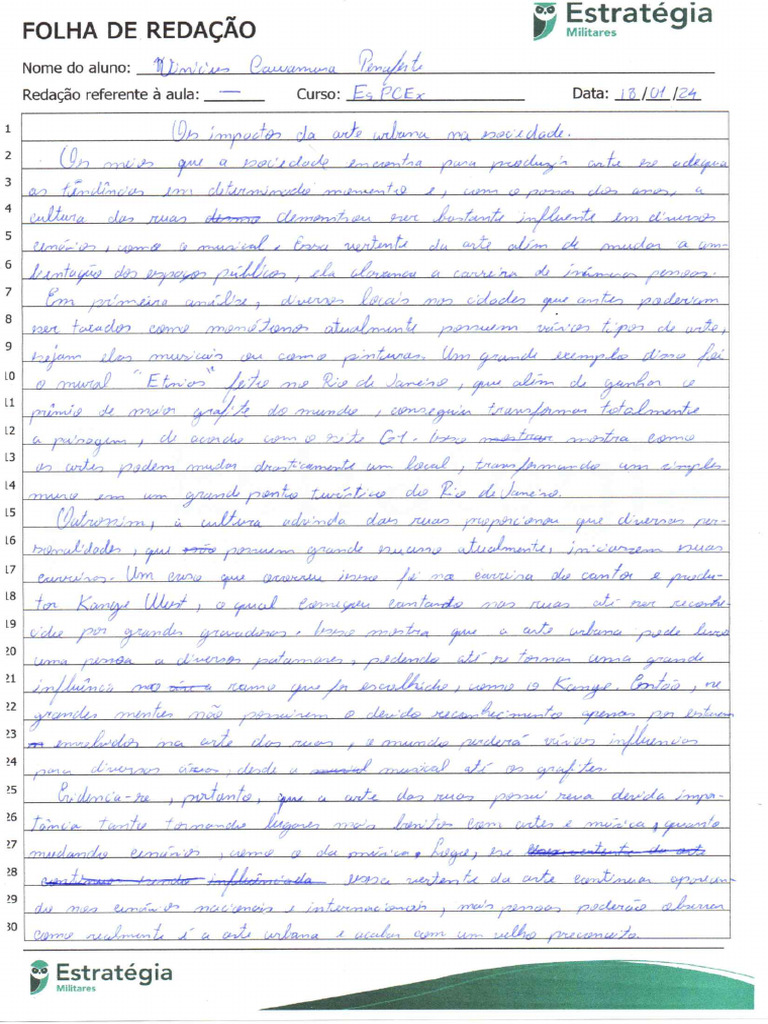 FOLHA DE REDAÇÃO
Estratégia
Militares
Nome do aluno: Vinicius Penaforte
Redação referente à aula: — Curso: EsPCEx Data: 18/01/24
1 Os impactos da arte urbana na sociedade.
2 Os meios que a sociedade encontra para produzir arte se adequa
3 as tendências em determinado momento e, com o passar dos anos, a
4 cultura das ruas demonstrou ser bastante influente em diversos
5 cenários, como o musical. Essa vertente da arte além de mudar a am-
6 bientação dos espaços públicos, ela alavanca a carreira de inúmeras pessoas.
7 Em primeira análise, diversos locais nas cidades que antes poderiam
8 ser taxados como monótonos atualmente possuem vários tipos de arte,
9 sejam elas musicais ou como pinturas. Um grande exemplo disso foi
10 o mural "Etnias" feito no Rio de Janeiro, que além de ganhar o
11 prêmio de maior grafite do mundo, conseguiu transformar totalmente
12 a paisagem, de acordo com o site G1. Isso mostrar mostra como
13 as artes podem mudar drasticamente um local, transformando um simples
14 muro em um grande ponto turístico do Rio de Janeiro.
15 Outrossim, a cultura advinda das ruas proporcionou que diversas per-
16 sonalidades, que possuem grande sucesso atualmente, iniciassem suas
17 carreiras. Um caso que ocorreu isso foi na carreira do cantor e produ-
18 tor Kanye West, o qual começou cantando nas ruas até ser reconhe-
19 cido por grandes gravadoras. Isso mostra que a arte urbana pode levar
20 uma pessoa a diversos patamares, podendo até se tornar uma grande
21 influência no ramo que foi escolhido, como o Kanye. Então, se
22 grandes mentes não possuírem o devido reconhecimento apenas por estarem
23 envolvidos na arte das ruas, o mundo perderá várias influências
24 para diversas áreas, desde a musical musical até os grafites.
25 Evidencia-se, portanto, que a arte das ruas possui sua devida impor-
26 tância tanto tornando lugares mais bonitos com artes e música, quanto
27 mudando cenários, como o da música. Logo, se essa vertente da arte
28 continuar sendo influenciada essa vertente da arte continuar aparecen-
29 do nos cenários nacionais e internacionais, mais pessoas poderão observar
30 como realmente é a arte urbana e acabar com um velho preconceito.
Estratégia
Militares